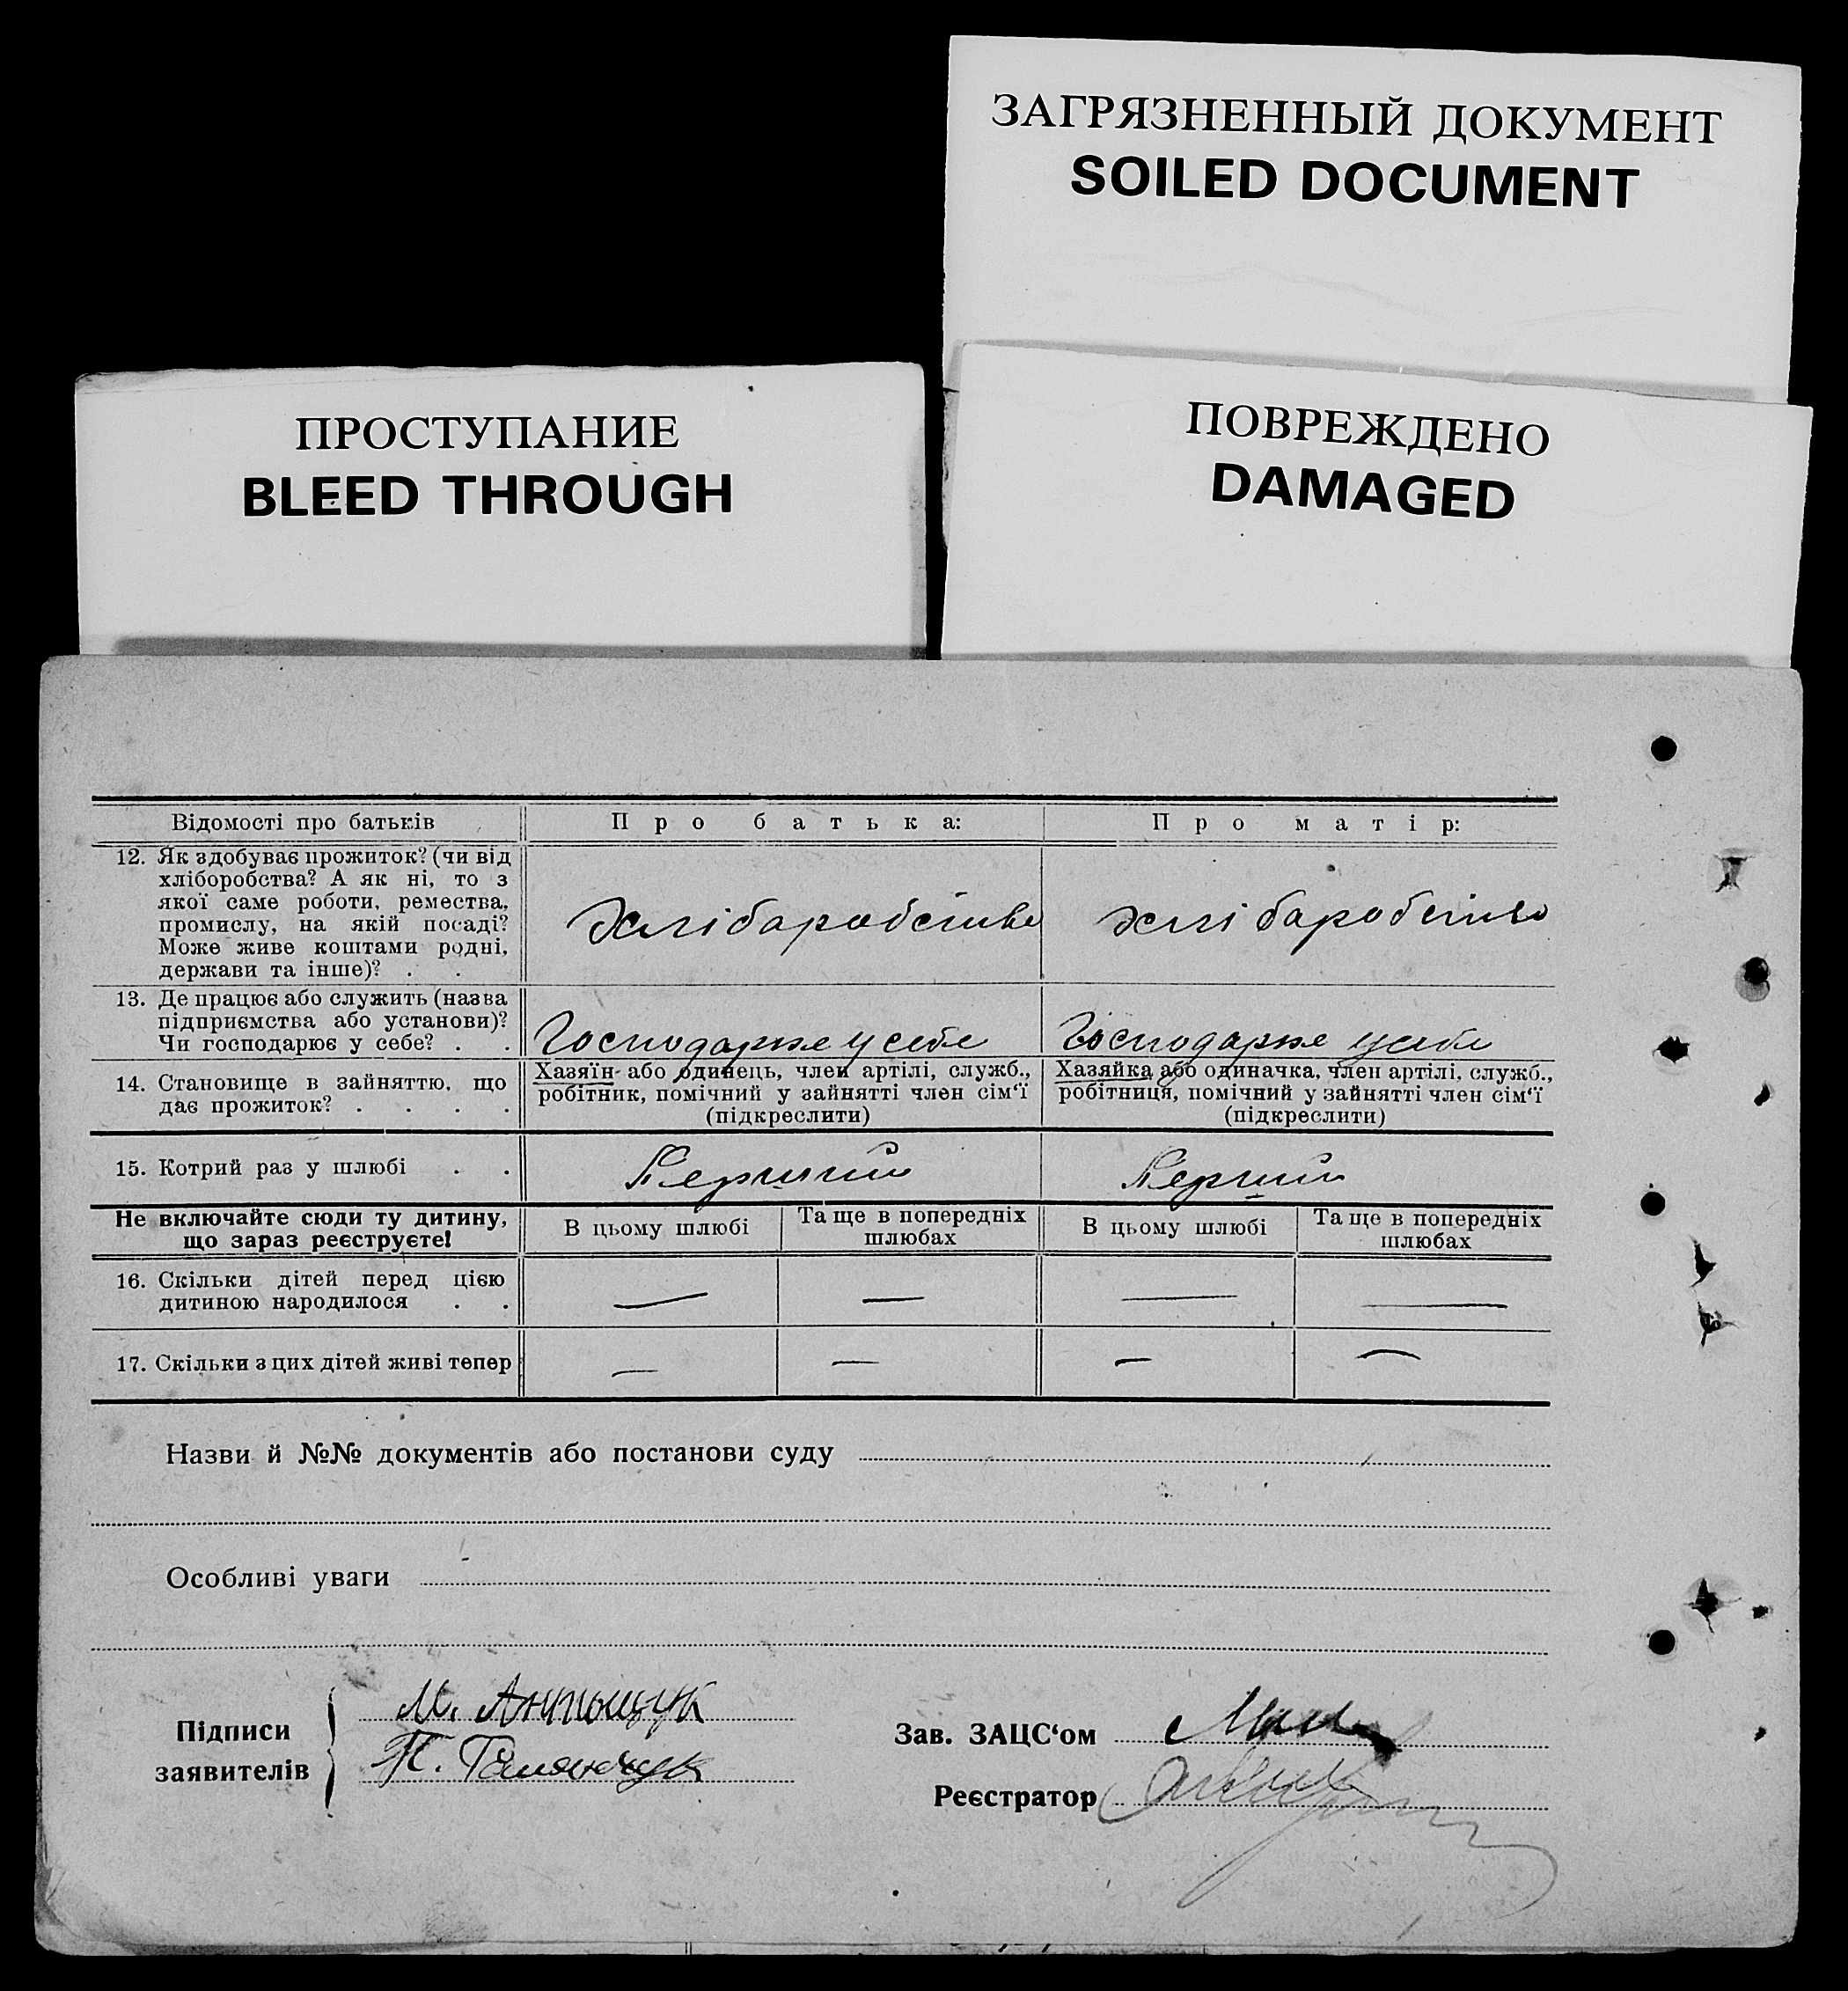 ЗАГРЯЗНЕННЫЙ ДОКУМЕНТ
SOILED DOCUMENT
ПРОСТУПАНИЕ
BLEED THROUGH
ПОВРЕЖДЕНО
DAMAGED
Відомості про батьків
Про батька:
Про матір:
12. Як здобуває прожиток? (чи від
хліборобства? А як ні, то з
якої саме роботи, ремества,
промислу, на якій посаді?
Може живе коштами родні,
держави та інше)? . .
хлібаробство
хлібаробство
13. Де працює або служить (назва
підприємства або установи)?
Чи господарює у себе? . .
Господарює у себе
Господарює у себе
14. Становище в зайняттю, що
дає прожиток? . . . .
Хазяїн- або одинець, член артілі, служб.,
робітник, помічний у зайнятті член сім‘ї
(підкреслити)
Хазяйка або одиначка, член артілі, служб.,
робітниця, помічний у зайнятті член сім‘ї
(підкреслити)
15. Котрий раз у шлюбі . .
Перший
Перший
Не включайте сюди ту дитину,
що зараз реєструєте!
В цьому шлюбі
Та ще в попередніх
шлюбах
В цьому шлюбі
Та ще в попередніх
шлюбах
16. Скільки дітей перед цією
дитиною народилося . .
—
—
—
—
17. Скільки з цих дітей живі тепер
—
—
—
—
Назви й №№ документів або постанови суду
Особливі уваги
Підписи
заявителів
М.
Зав. ЗАЦС‘ом
Реєстратор